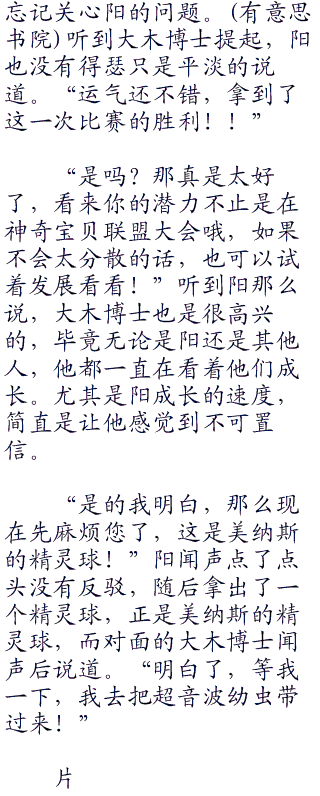 忘记关心阳的问题。(有意思
书院)听到大木博士提起，阳
也没有得瑟只是平淡的说
道。“运气还不错，拿到了
这一次比赛的胜利！！”
“是吗？那真是太好
了，看来你的潜力不止是在
神奇宝贝联盟大会哦，如果
不会太分散的话，也可以试
着发展看看！”听到阳那么
说，大木博士也是很高兴
的，毕竟无论是阳还是其他
人，他都一直在看着他们成
长。尤其是阳成长的速度，
简直是让他感觉到不可置
信。
“是的我明白，那么现
在先麻烦您了，这是美纳斯
的精灵球！”阳闻声点了点
头没有反驳，随后拿出了一
个精灵球，正是美纳斯的精
灵球，而对面的大木博士闻
声后说道。“明白了，等我
一下，我去把超音波幼虫带
过来！”
片